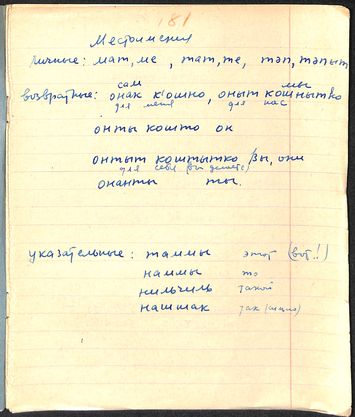 181
Местоимения
личные: мат, ме, тат, те, тэп, тэпыт
сам мы
возвратные: онак к'ошно, оныт кошнытко
для меня для нас
онты кошто он
онтыт коштытко вы, они
для себя (вы делаете)
онанты ты.
указательные: таммы этот (вот!)
наммы то
нильчиль такой
нашшак так